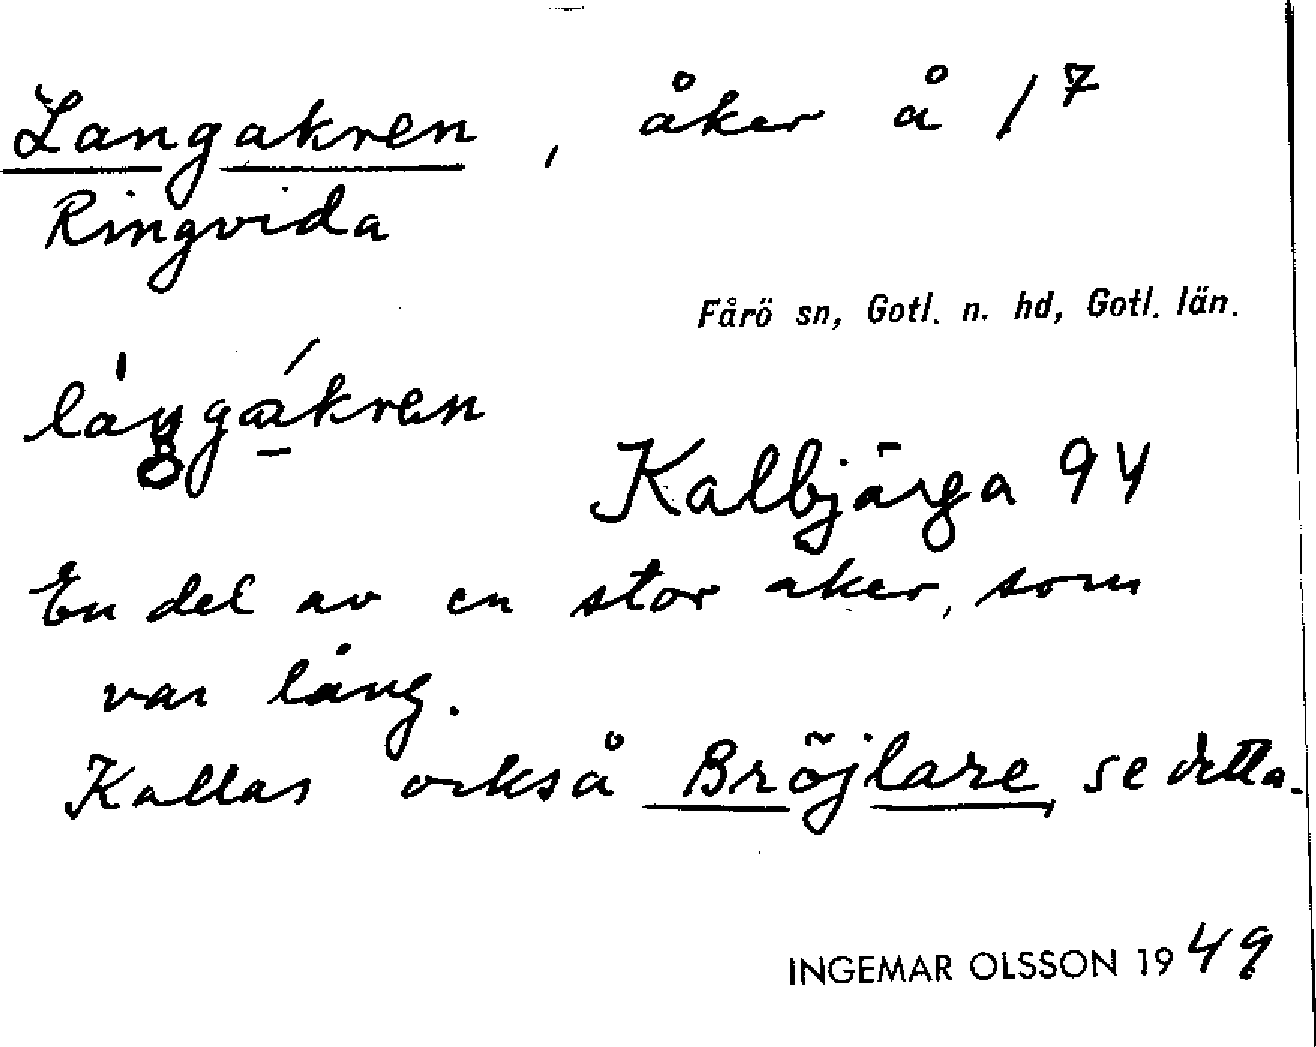 Langakren, åker å 1⁷
Ringvida
Fårö sn, Gotl. n. hd, Gotl. län.
Kalbjärga 94
En del av en stor aker, som
var lång.
Kallas också Bröjlare, se detta.
INGEMAR OLSSON 1949